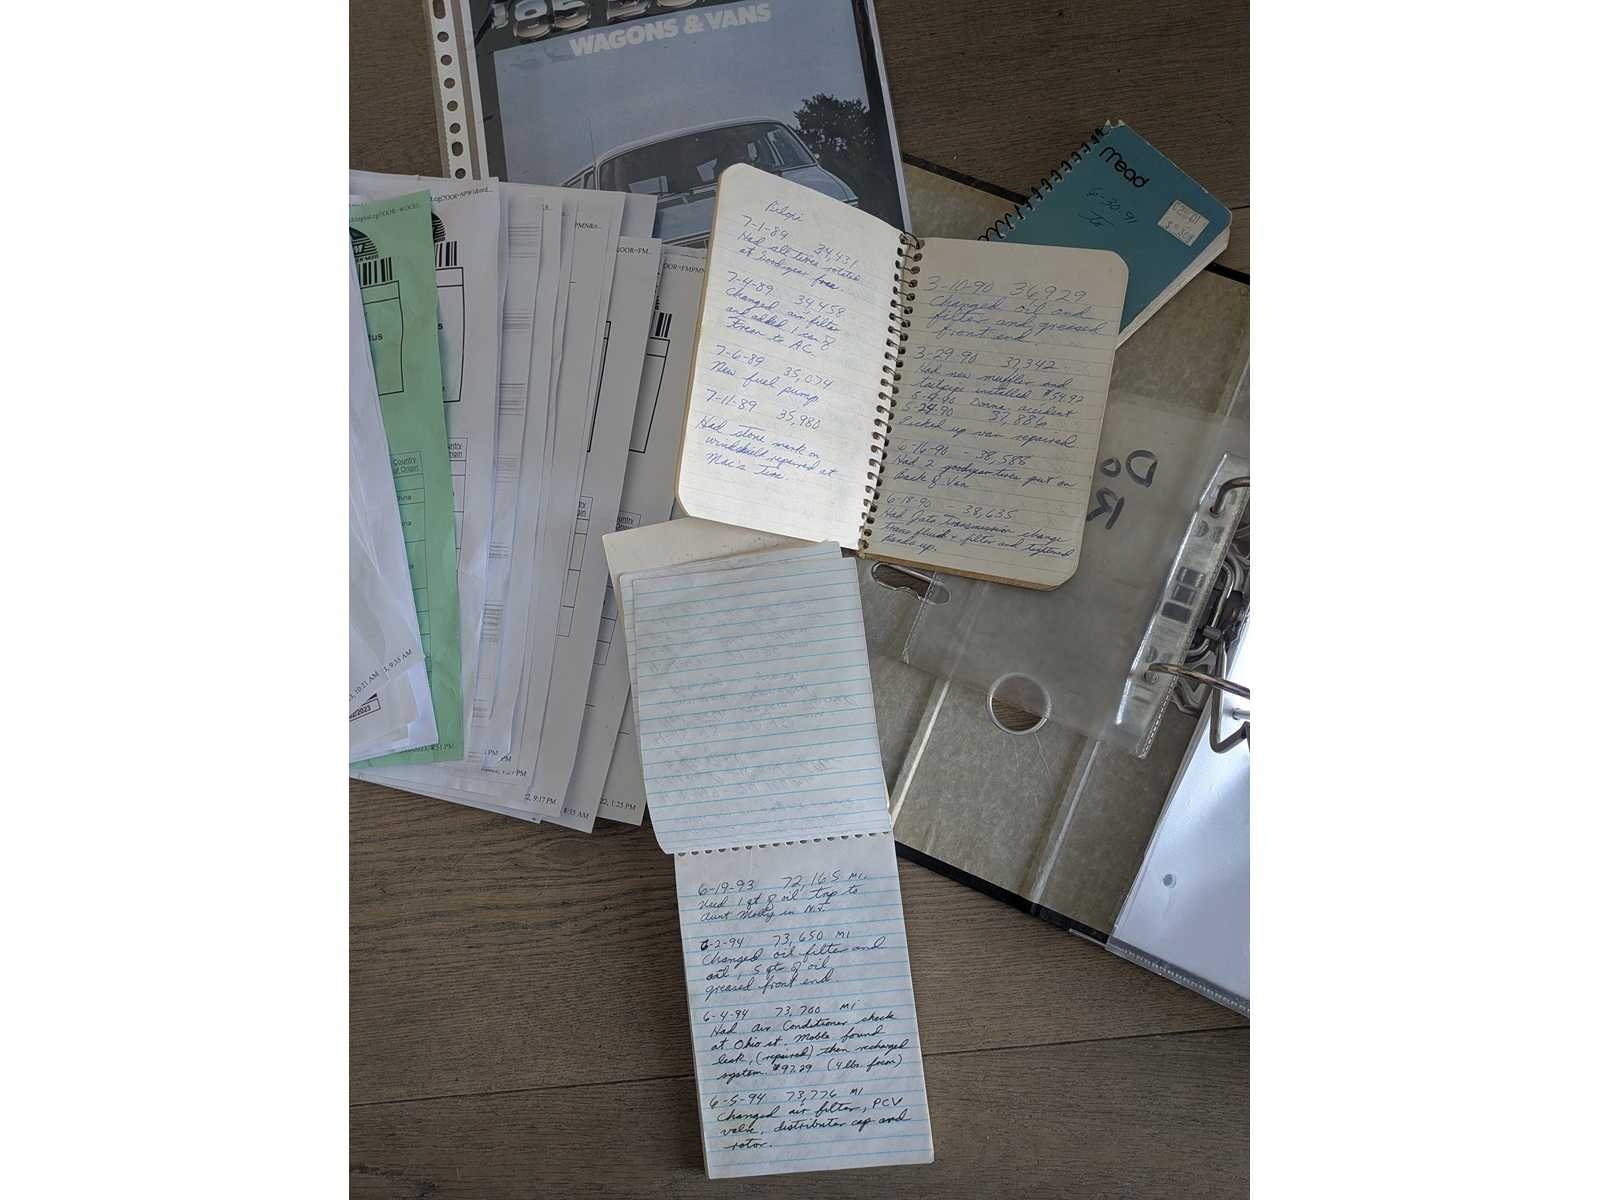 '85
WAGONS & VANS
mead
6-30-91
to
Biloxi
7-1-89 34,431
Had all tires rotated
at Goodyear free.
7-4-89 34,458
Changed air filter
and added 1 can of
freon to A.C.
7-6-89 35,074
New fuel pump
7-11-89 35,980
Had stone mark on
windshield repaired at
Mac's Tire.
3-10-90 36,929
Changed oil and
filter and greased
front end
3-29-90 37,342
Had new muffler and
tailpipe installed $54.92
accident
5-24-90 37,886
Picked up van repaired
6-16-90 38,588
Had 2 goodyear tires put on
Back of Van
6-18-90 38,635
Had Transmission change
trans fluid + filter and tightened
Bands up.
6-19-93 72,165 MI.
Used 1 qt of oil trip to
Aunt in N.J.
6-2-94 73,650 MI
Changed oil filter and
oil, 5 qts of oil
greased front end.
6-4-94 73,700 MI
Had Air Conditioner check
at Ohio st. Mobile found
leak, (repaired) then recharged
system. $97.29 (4 lbs. freon)
6-5-94 73,776 MI
Changed air filter, PCV
valve, distributer cap and
rotor.
Country
of Origin
Country
of Origin
10:21 AM
9:35 AM
9:17 PM
8:35 AM
1:25 PM